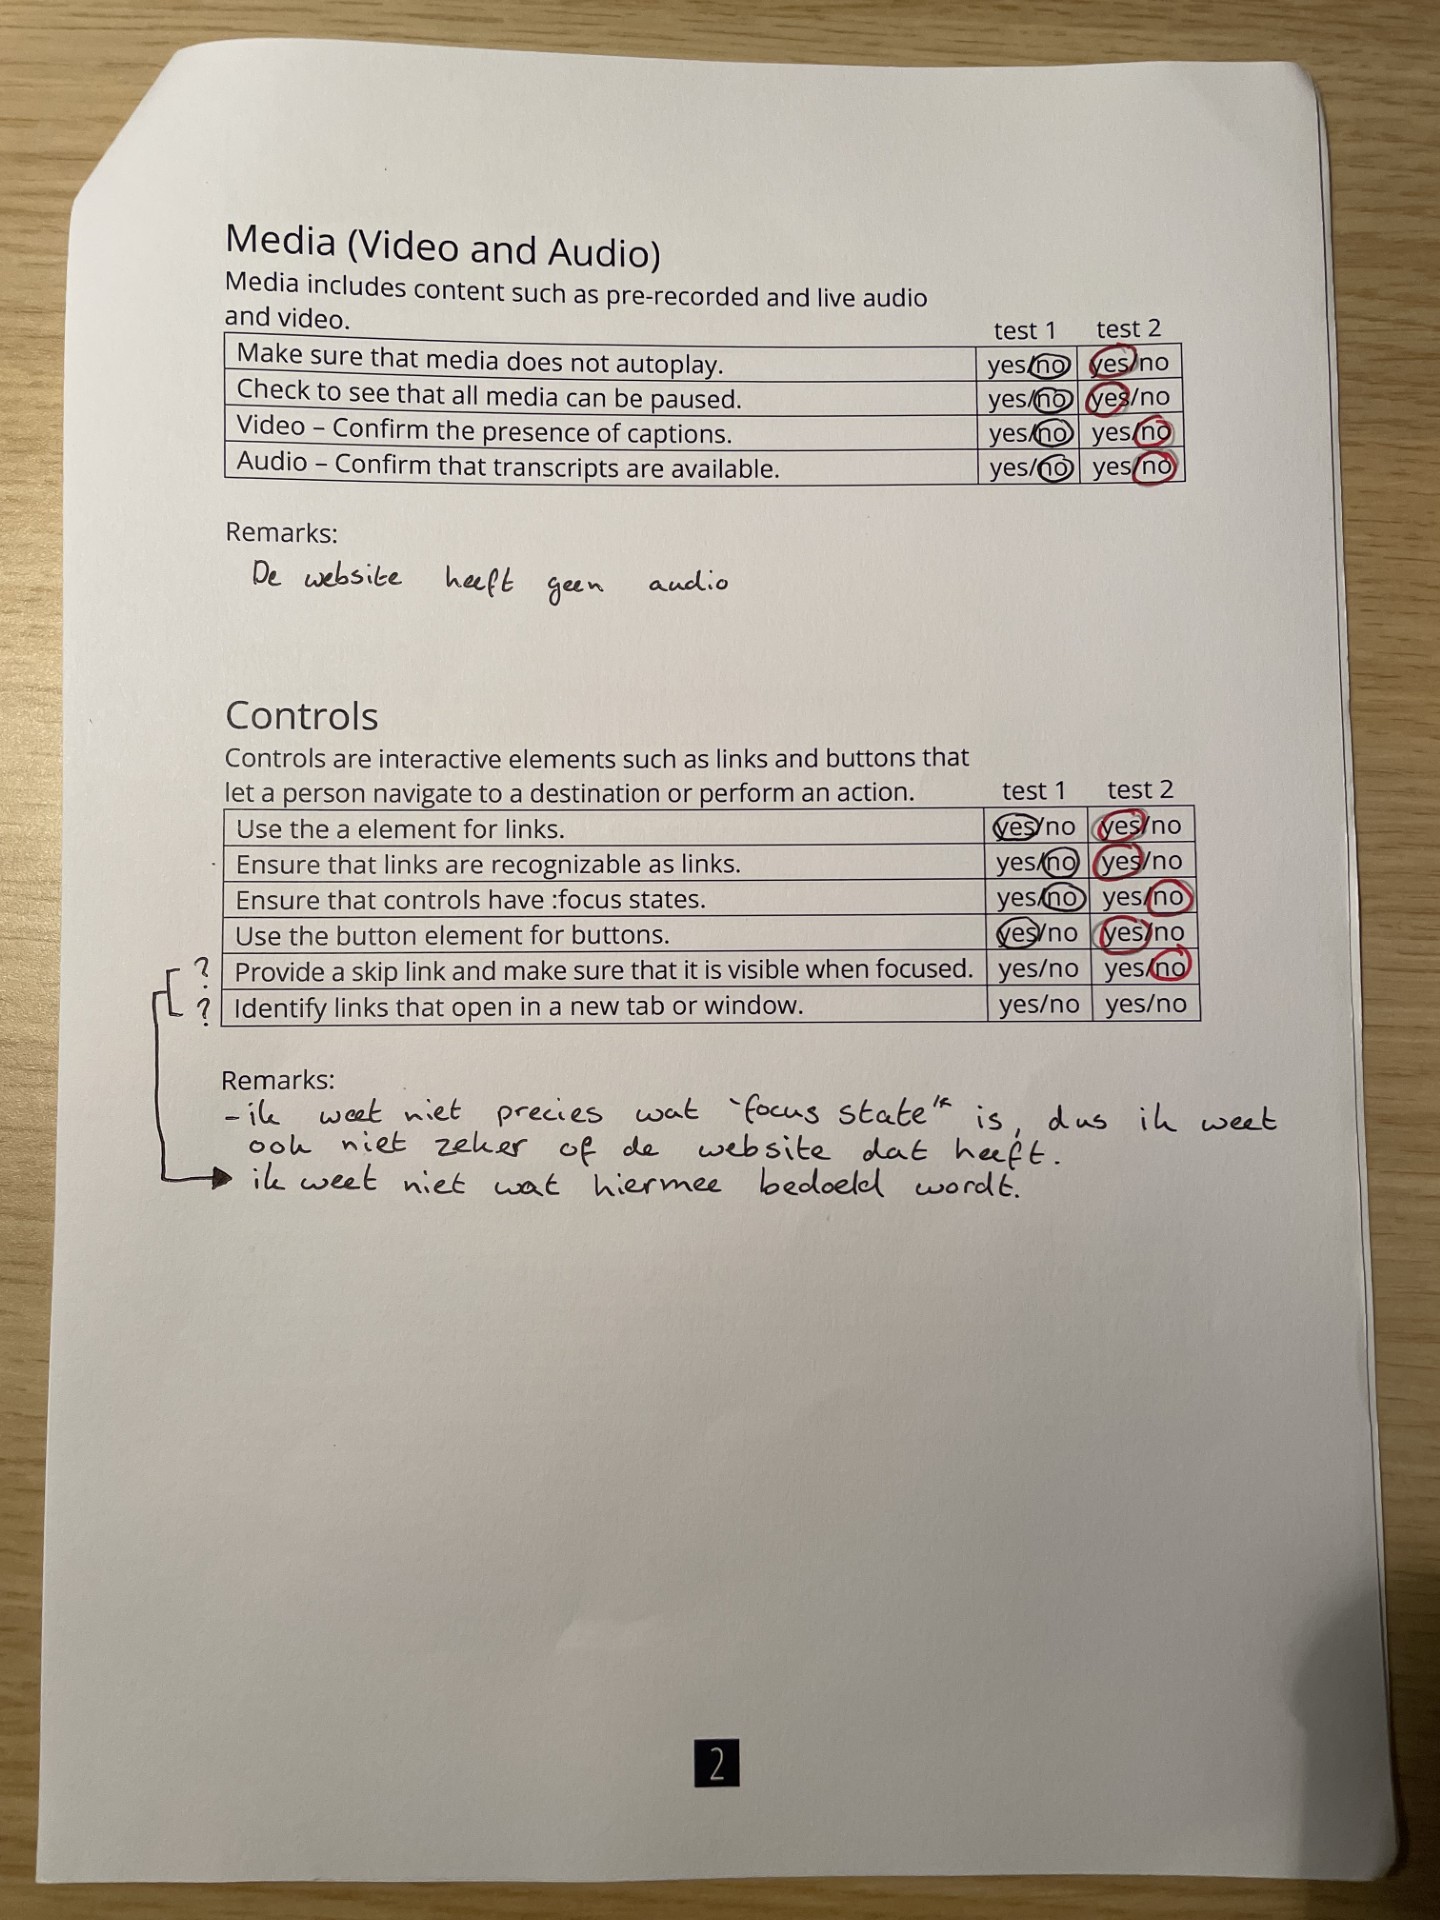 Media (Video and Audio)
Media includes content such as pre-recorded and live audio
and video. test 1 test 2
Make sure that media does not autoplay. yes/no yes/no
Check to see that all media can be paused. yes/no yes/no
Video – Confirm the presence of captions. yes/no yes/no
Audio – Confirm that transcripts are available. yes/no yes/no
Remarks:
De website heeft geen audio
Controls
Controls are interactive elements such as links and buttons that
let a person navigate to a destination or perform an action. test 1 test 2
Use the a element for links. yes/no yes/no
Ensure that links are recognizable as links. yes/no yes/no
Ensure that controls have :focus states. yes/no yes/no
Use the button element for buttons. yes/no yes/no
? Provide a skip link and make sure that it is visible when focused. yes/no yes/no
? Identify links that open in a new tab or window. yes/no yes/no
Remarks:
- ik weet niet precies wat "focus state" is, dus ik weet
ook niet zeker of de website dat heeft.
ik weet niet wat hiermee bedoeld wordt.
2